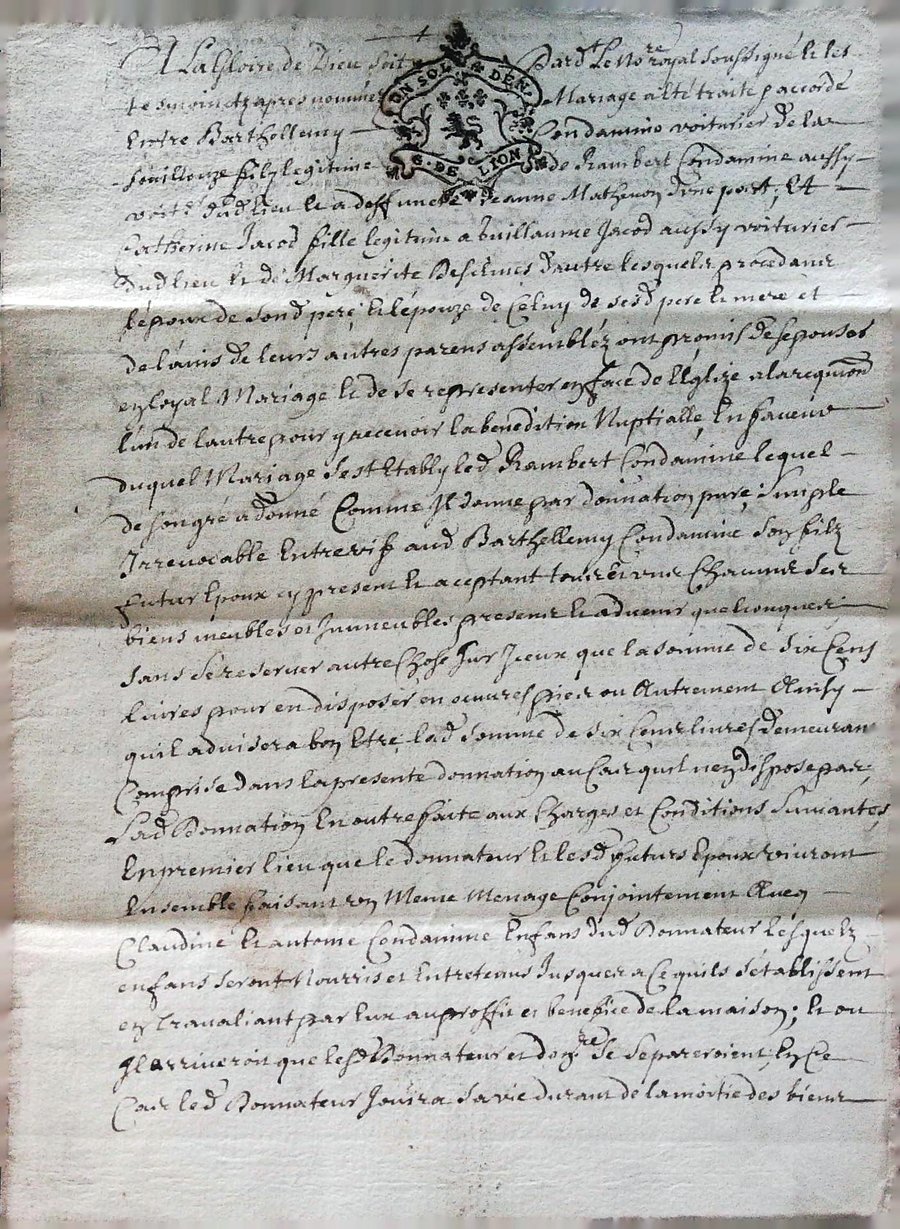 A La Gloire de Dieu soit Pard.t Le No.re royal soussigné et les
tesmoins cy apres nommés Mariage a été traité p accordé
Entre Barthellemy Condamine voiturier de la
fouillouze filz legitime de Rambert Condamine aussy
voit.r dud lieu et a deffuncte Jeanne Mathevon d'une part, Et
Catherine Jacod fille legitime a Guillaume Jacod aussy voiturier
Dud lieu et de Marguerite Deschmes d'autre lesquels procedans
l'époux de sond pere, et l'épouze de Celuy de sesd pere et mere et
de l'avis de leurs autres parens assembléz ont promis de se epouser
en loyal Mariage et de se representer en face de l'Eglize a la requi.on
l'un de l'autre pour y recevoir la benedition Nuptialle, En faveur
duquel Mariage s'est Etably led Rambert Condamine lequel
de son gré a donné Comme Il donne par donnation pure, simple
Irrevocable Entrevifs aud Barthellemy Condamine son filz
futur Epoux cy present et aceptant tous et uns Chacuns ses
biens meubles et Immeubles presens et advenir quelconques
sans se reserver autre Chose sur Iceux que la somme de six Cens
livres pour en disposer en oeuvres pies ou Autrement Ainsy
qu'il advisera bon Etre, lad somme de six Cens livres demeuran
Comprise dans la presente donnation au Cas qu'il n'en dispose pas,
Lad Donnation En outre faite aux Charges et Conditions Suivantes
En premier lieu que le donnateur et lesd futurs Epoux vivront
Ensemble faisant un Meme Menage Conjointement Avec
Claudine et antoine Condamine Enfans dud Donnateur Lesquelz
enfans seront Nourris et Entretenus Jusques a Ce quils s'établissent
en travaliant par Eux au proffit et benefice de la maison; et ou
Il arriveroit que lesd Donnateur et don.re se separeroient, En Ce
Cas led Donnateur Jouira sa vie durant de la moitie des biens
GEN SOL DEN.
G. DE LION